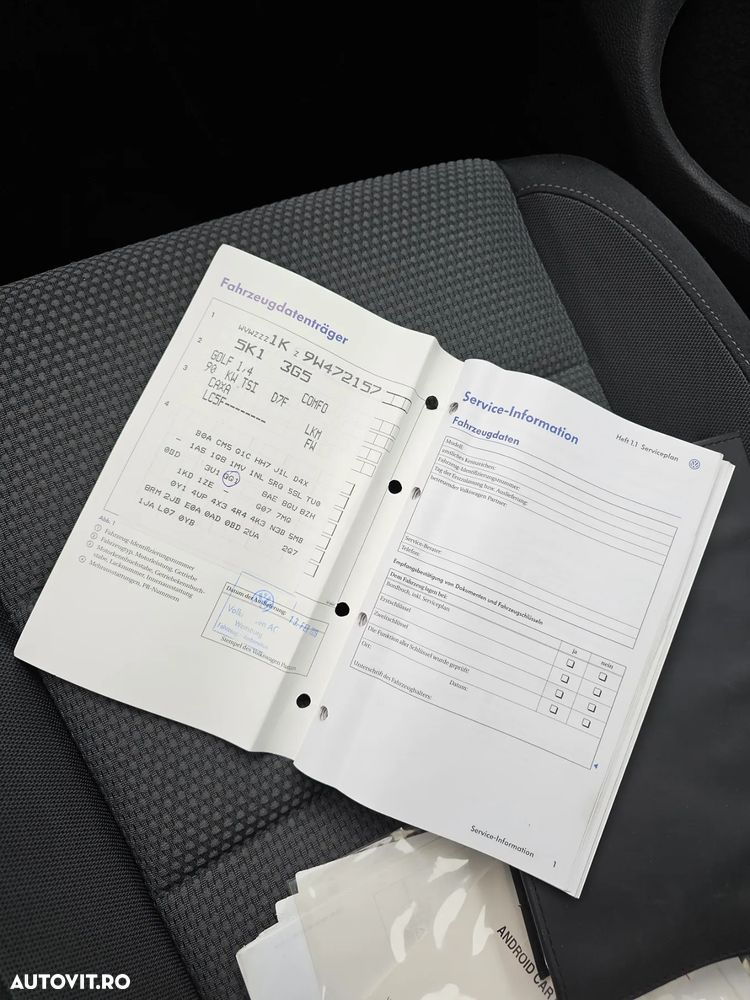 Fahrzeugdatenträger
1
WVWZZZ1K Z 9W472157
2
5K1 3G5
3
GOLF 1,4
90 KW TSI D7F COMFO
CAXA LKM
LC5F-------- FW
4
B0A CM5 G1C HH7 J1L D4X
- 1AS 1GB 1MV 1NL 5RG 5SL TU0
0BD 3U1 8AE 8GU 8ZH
1KD 1ZE - G07 7MG
0YI 4UP 4X3 4R4 4K3 N3B 5MB
8RM 2JB E0A 0AD 0BD 2UA 2G7
1JA L07 0YB
Abb. 1
① Fahrzeug-Identifizierungsnummer
② Fahrzeugtyp, Motorleistung, Getriebe
③ Motorkennbuchstabe, Getriebekennbuch-
stabe, Lacknummer, Innenausstattung
④ Mehrausstattungen, PR-Nummern
Datum der Auslieferung:
Wolfsburg
Stempel des Volkswagen Partners
Service-Information Heft 1.1 Serviceplan
Fahrzeugdaten
Modell:
amtliches Kennzeichen:
Fahrzeug-Identifizierungsnummer:
Tag der Erstzulassung bzw. Auslieferung:
betreuender Volkswagen Partner:
Service-Berater:
Telefon:
Empfangsbestätigung von Dokumenten und Fahrzeugschlüsseln
Dem Fahrzeug lagen bei: ja nein
Bordbuch, inkl. Serviceplan
Erstschlüssel
Zweitschlüssel
Die Funktion aller Schlüssel wurde geprüft!
Ort: Datum:
Unterschrift des Fahrzeughalters:
Service-Information 1
ANDROID CAR
AUTOVIT.RO